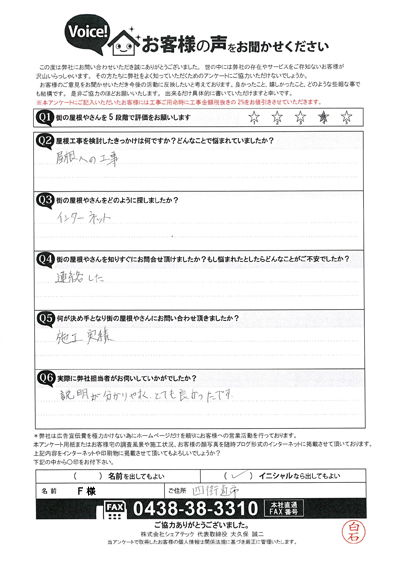 Voice! お客様の声をお聞かせください
この度は弊社にお問い合わせいただき誠にありがとうございました。世の中には弊社の存在やサービスをご存知ないお客様が
沢山いらっしゃいます。その方たちに弊社をよく知っていただくためのアンケートにご協力いただけないでしょうか。
お客様のご意見をお聞かせいただき今後の活動に反映したいと考えております。良かったこと、嬉しかったこと、どのような些細な事で
も結構です。是非ご協力のほどお願いいたします。出来るだけ具体的に書いていただけますと幸いです。
※本アンケートにご記入いただいたお客様には工事ご用命時に工事金額税抜きの2%をお値引きさせていただきます。
Q1 街の屋根やさんを5段階で評価をお願いします ☆ ☆ ☆ ★ ☆
Q2 屋根工事を検討したきっかけは何ですか?どんなことで悩まれていましたか?
屋根への工事
Q3 街の屋根やさんをどのように探しましたか?
インターネット
Q4 街の屋根やさんを知りすぐにお問合せ頂けましたか?もし悩まれたとしたらどんなことがご不安でしたか?
連絡した
Q5 何が決め手となり街の屋根やさんにお問い合わせ頂きましたか?
施工実績
Q6 実際に弊社担当者がお伺いしていかがでしたか?
説明が分かりやすく、とても良かったです。
※弊社は広告宣伝費を極力かけない為にホームページだけを頼りにお客様への営業活動を行っております。
本アンケート用紙またはお客様宅の調査風景や施工状況、お客様の顔写真を随時ブログ形式のインターネットに掲載させて頂いております。
上記内容をインターネットや印刷物に掲載させて頂いてもよろしいでしょうか?
下記の中から〇印をお付下さい。
( ) 名前を出してもよい ( ✓ ) イニシャルなら出してもよい
名前 F様 ご住所 四街道市
FAX 0438-38-3310 本社直通 FAX番号
ご協力ありがとうございました。
株式会社シェアテック 代表取締役 大久保 誠二
当アンケートで取得したお客様の個人情報は関係法規に基づき厳正に管理いたします。
白石